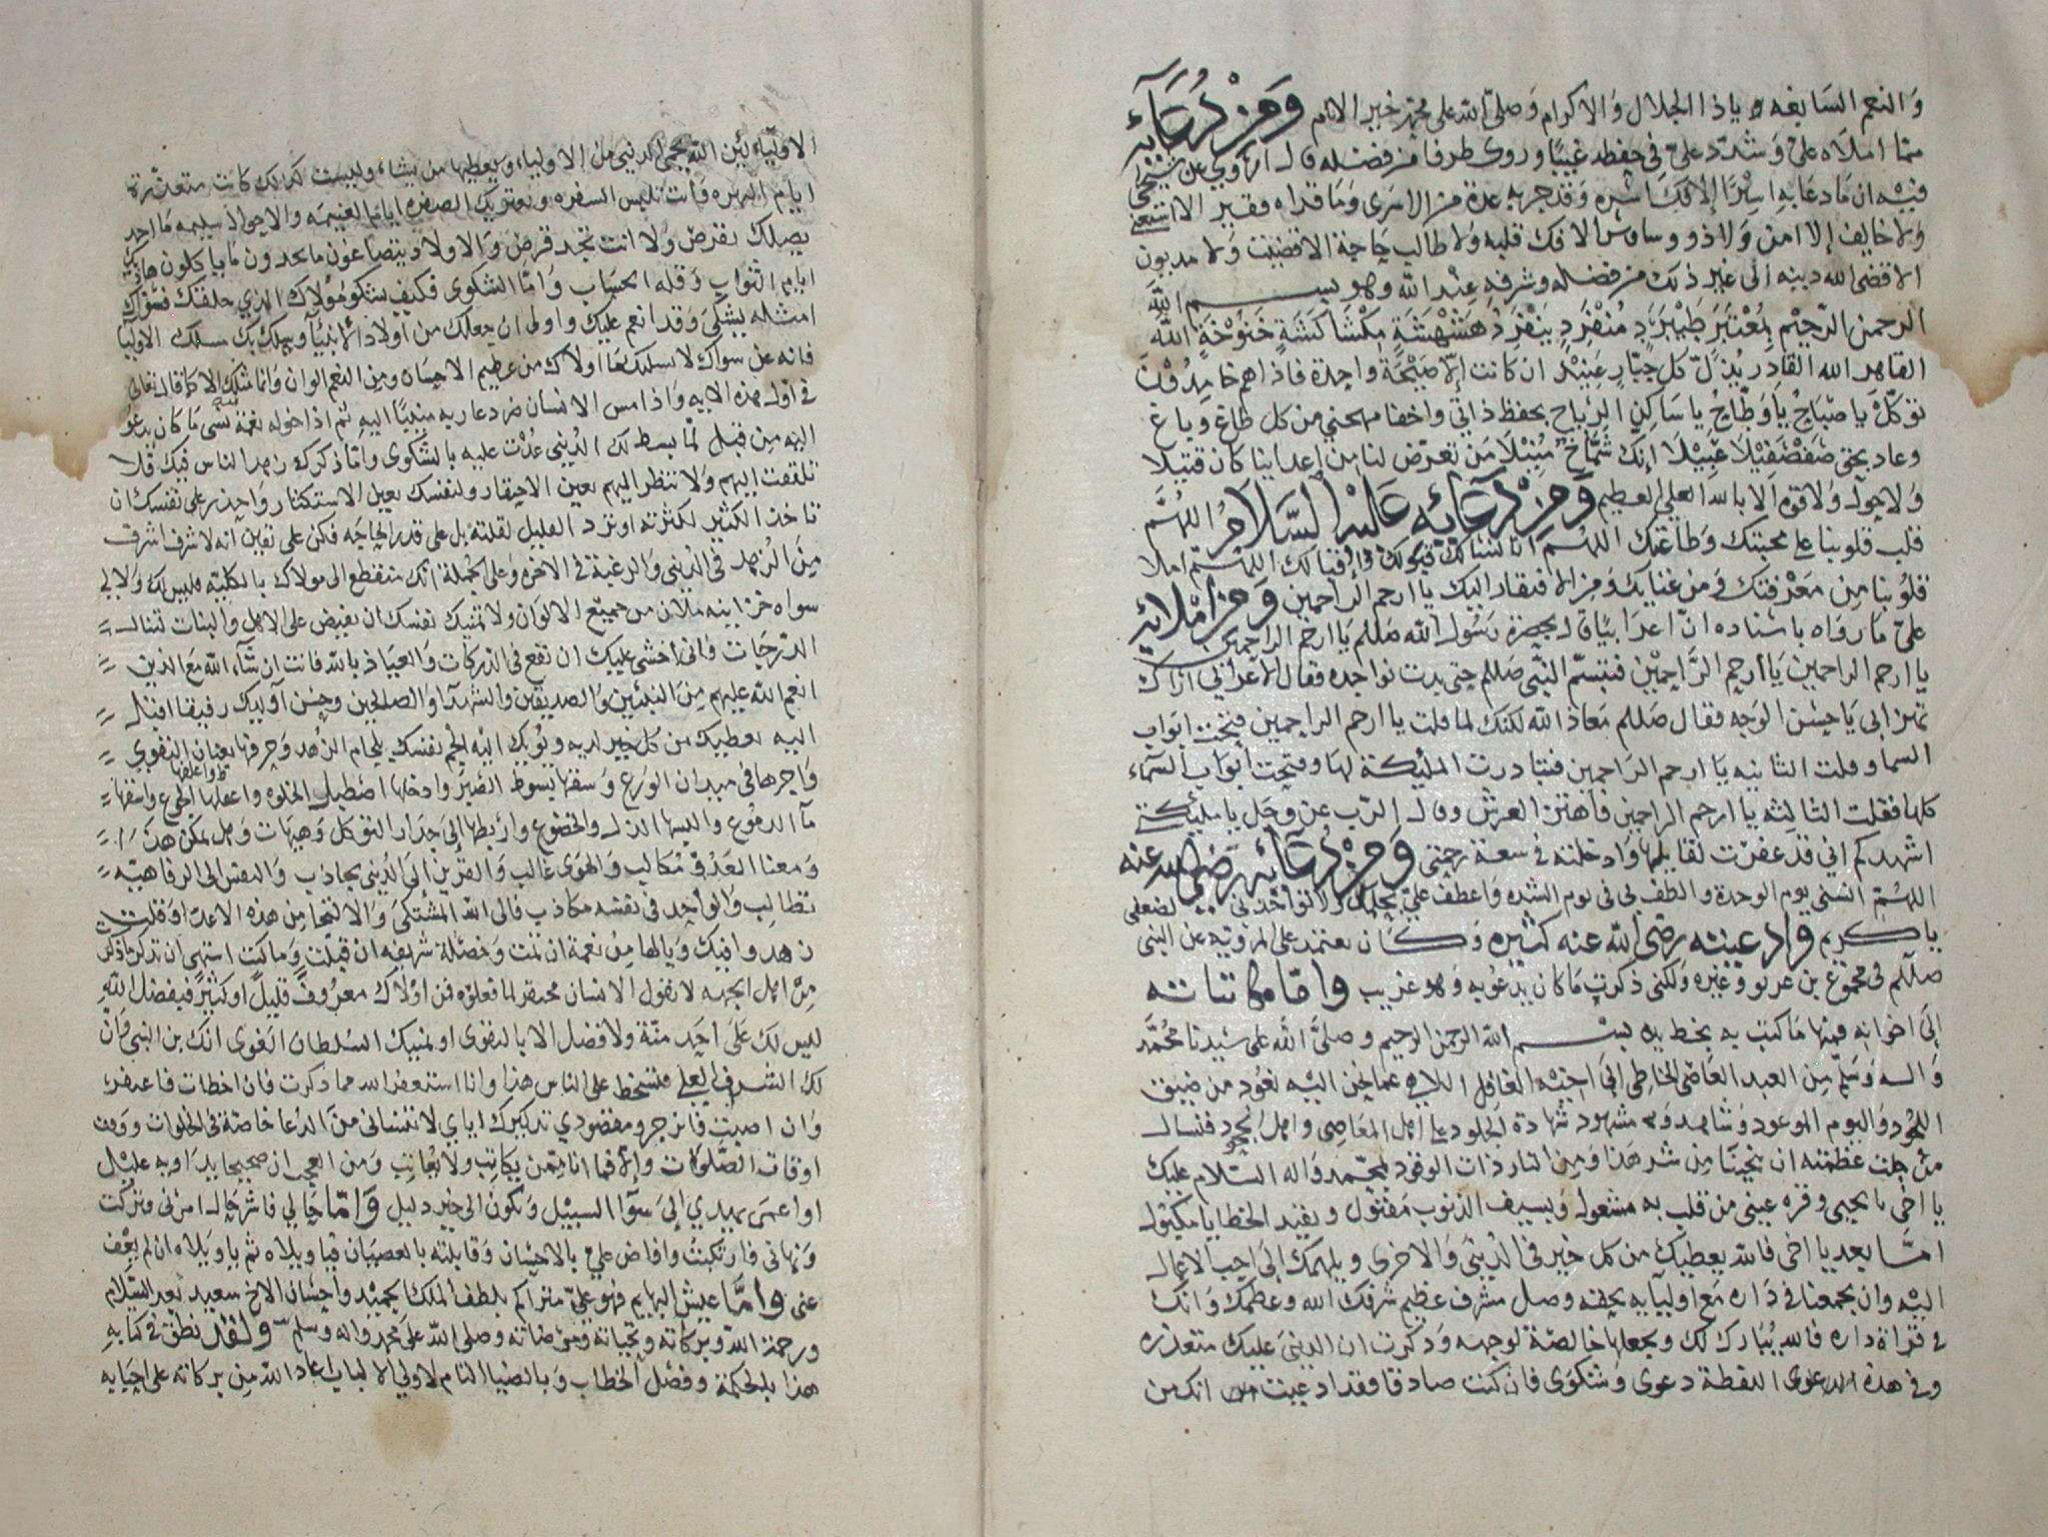 والنعم السابغه وياذا الجلال والاكرام وصلى الله على محمد خير الانام ومن دعائه
مما املاه علي وشدد علي في حفظه غيبا وروى طرفا من فضله قال اروي عن شيخي
فيه ان ما دعا به اسيرا الا فك اسره وقد جربه عدة من الاسرى وما قراه فقير الا استغنى
ولا خايف الا امن ولا ذو وسواس الا فك قلبه ولا طالب حاجة الا قضيت ولا مديون
الا قضى الله دينه الى غير ذلك من فضله وشرفه عند الله وهو بسم الله
الرحمن الرحيم الله
القاهر الله القادر يذل كل جبار عنيد ان كانت الا صيحة واحدة فاذاهم خامدون
توكل يا صباح يا وظاح يا ساكن الرياح بحفظ ذاتي واخفا مهجتي من كل طاغ وباغ
وعاد بحق انك شماخ من تعرض لنا من اعداينا كان قتيلا
ولا حول ولا قوة الا بالله العلي العظيم ومن دعائه عليه السلام اللهم
قلب قلوبنا على محبتك وطاعتك اللهم اللهم املا
قلوبنا من معرفتك ومن غنايك ومن الافتقار اليك يا ارحم الراحمين ومن املائه
علي ما رواه باسناده ان اعرابيا قال بحضرة رسول الله صللم يا ارحم الراحمين
يا ارحم الراحمين يا ارحم الراحمين فتبسم النبي صللم حتى بدت نواجده فقال الاعرابي اراك
تهزا بي يا حسن الوجه فقال صللم معاذ الله لكنك لما قلت يا ارحم الراحمين فتحت ابواب
السما وقلت الثانيه يا ارحم الراحمين فتبادرت المليكة لها وفتحت ابواب السماء
كلها فقلت الثالثه يا ارحم الراحمين فاهتز العرش وقال الرب عز وجل يا مليكتي
اشهدكم اني قد غفرت لقايلها وادخلته في سعة رحمتي ومن دعائه رضي الله عنه
اللهم انسني يوم الوحدة والطف بي في يوم الشده واعطف علي بحلمك ولا تواخذني لضعفي
يا كريم وادعيته رضي الله عنه كثيره وكان يعتمد على المرويه عن النبي
صللم في مجموع بن عزيو وغيره ولكني ذكرت ما كان يدعو به وهو غريب واما مكاتباته
الى اخوانه فمنها ما كتب به بخط يده بسم الله الرحمن الرحيم وصلى الله على سيدنا محمد
واله وسلم من العبد العاصي الخاطي الى اخيه الغافل اللاهي عما لجن اليه نعوذ من ضيق
اللحود واليوم الموعود وشاهد ومشهود شهادة الجلود على اهل المعاصي واهل الجحود فنسال
من جلت عظمته ان ينجينا من شر هذا ومن النار ذات الوقود بمحمد واله السلام عليك
يا اخي يا يحيى وقره عيني من قلب به مشغول وبسيف الذنوب مقتول وبقيد الخطايا مكبول
اما بعد يا اخي فالله يعطيك من كل خير في الدنيى والاخرى ويلهمك الى احب الاعمال
اليه وان يجمعنا في داره مع اوليايه بحقه وصل مشرف عظيم شرفك الله وعظمك وانك
في قراة داره فالله يبارك لك ويجعلها خالصة لوجهه وذكرت ان الدنيى عليك متعذره
وفي هذه الدعوى اللفظة دعوى وشكوى فان كنت صادقا فقد ادعيت انك من
الاولياء لين الله يحمي الدنيى من الاولياء ويعطيها من يشاء وليست كذلك كانت متعذرة
ايام النهره وانت تلبس السفره ويعتريك الصفره اياما لغنيمه والاحوال سليمه ما احد
يصلك بقرض ولا انت تجد قرض والاولاد يتضاغون ما يجدون ما ياكلون هاتيك
ايام الثواب وقله الحساب واما الشكوى فكيف تشكو مولاك الذي خلقك فسواك
امثله يشكى وقد انعم عليك واولى ان جعلك من اولاد الانبيا ويملك بك مسلك الاوليا
فانه عن سواك لا يسليك ما اولاك من عظيم الاحسان ومن النعم الوان وانما مثلك الا كما قال تعالى
في اول هذه الايه واذا مس الانسان ضر دعا ربه منيبا اليه ثم اذا خوله نعمة منه نسي ما كان يدعو
اليه من قبل لما بسط لك الدنيى عدت عليه بالشكوى واما ذكرك زهد الناس فيك فلا
تلتفت اليهم ولا تنظر اليهم بعين الاحتقار ولنفسك بعين الاستكثار واحذر على نفسك ان
تاخذ الكثير لكثرته او ترد القليل لقلته بل على قدر الحاجه فكن على يقين انه لا شرف اشرف
من الزهد في الدنيى والرغبة في الاخره وعلى الجملة انك منقطع الى مولاك بالكلية فليس لك ولا لي
سواه خزاينه ملان من جميع الالوان ولا تمنيك نفسك ان تفيض على الاهل والبنات لتنال
الدرجات فاني اخشى عليك ان تقع في الدركات والعياذ بالله فانت ان شاء الله مع الذين
انعم الله عليهم من النبيين والصديقين والشهدا والصالحين وحسن اوليك رفيقا اقبل
اليه يعطيك من كل خير لديه ويويك اليه الجم نفسك بلجام الزهد وجرها بعنان التقوى
واجرها في ميدان الورع وسقها بسوط الصبر وادخلها اصطبل الخلوه واعلفها الجوع واسقها
مآ الدموع والبسها الذل والخضوع واربطها الى جدار التوكل وهيهات وهل يمكن هذا
ومعنا العدو مكالب والهوى غالب والقرين الى الدنيى يجاذب والنفس الى الرفاهيه
تطالب والواحد في نفسه مكاذب فالى الله المشتكى والالتجا من هذه الاعدا وقلت
زهدوا فيك ويالها من نعمة ان تمت وخصلة شريفه ان قبلت وما كنت اشتهي ان تذكر ما ذكر
من اهل الجهه لا يقول الانسان محتقر لما فعلوه فمن اولاك معروفا قليلا او كثيرا فبفضل الله
ليس لك على احد منة ولا فضل الا بالتقوى او لمنيك السلطان الغوى انك بن النبي وان
لك الشرف العلي فتسخط على الناس هذا وانا استغفر الله مما ذكرت فان اخطات فاعتفر
وان اصبت فانزجر ومقصودي تذكيرك اياي لا تنساني من الدعا خاصة في الخلوات ووقت
اوقات الصلوات والا فما انا ممن يكاتب ولا يعاتب ومن العجب ان صحيحا يداويه عليل
او اعمى يهدي الى سوا السبيل ويكون الى خير دليل واما حالي فاشرحاله امرني فتركت
ونهاني فارتكبت وافاض علي بالاحسان وقابلته بالعصيان فياويلاه ثم ياويلاه ان لم يعف
عني واما عيش البهايم فهو علي متراكم بلطف الملك الحميد واحسان الاخ سعيد بعد السلام
ورحمة الله وبركاته وتحياته ومرضاته وصلى الله على محمد واله وسلم ولقد نطق في كتابه
هذا بالحكمة وفصل الخطاب وبالضيا التام لاولي الالباب اعاد الله من بركاته على احبابه